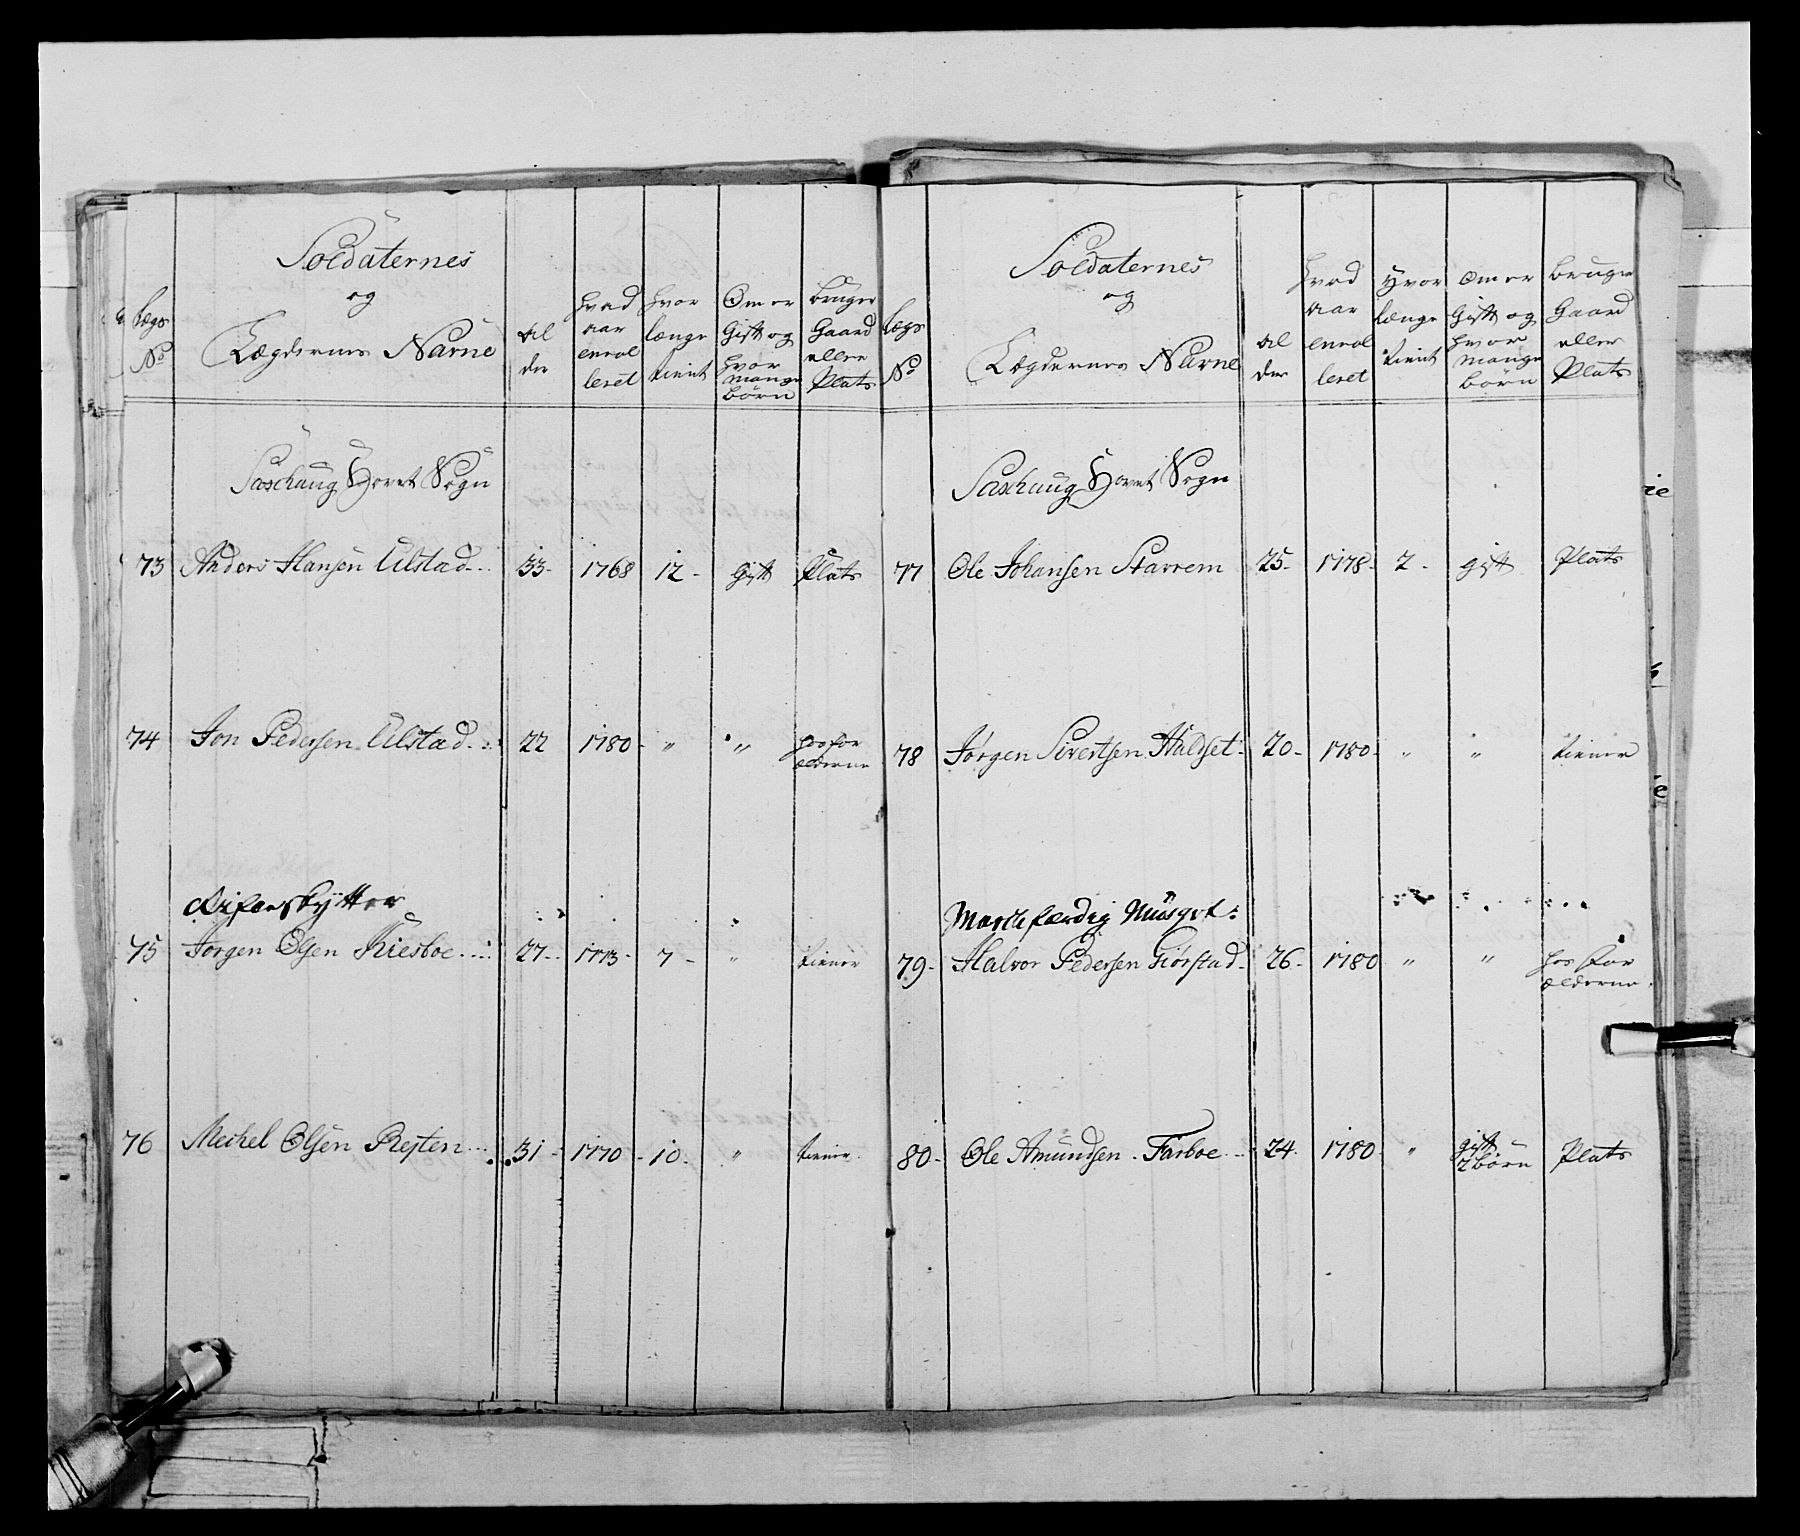 Lægs No | Soldaternes og Lægdernes Navne | Alder | hvad aar enrolleret | hvor længe tient | Om er Gift og hvor mange børn | bruger Gaard eller Plats
Saxhaug Hovet Sogn
73 Anders Hansen Ulstad 33 1768 12 Gift Plats
74 Jon Pedersen Ulstad 22 1780 " " hos for ældrene
75 Jørgen Olsen Kiesboe 27 1773 7 " tiener
76 Michel Olsen Resten 31 1770 10 " tiener
Lægs No | Soldaternes og Lægdernes Navne | Alder | hvad aar enrolleret | Hvor længe tient | Om er Gift og hvor mange børn | bruger Gaard eller Plats
Saxhaug Hovet Sogn
77 Ole Johansen Stavrem 25 1778 2 gift Plats
78 Jørgen Sivertsen Haldset 20 1780 " " tiener
79 Halvor Pedersen Giørstad 26 1780 " " hos For ældrene
80 Ole Amundsen Farboe 24 1780 " gift 2 børn Plats